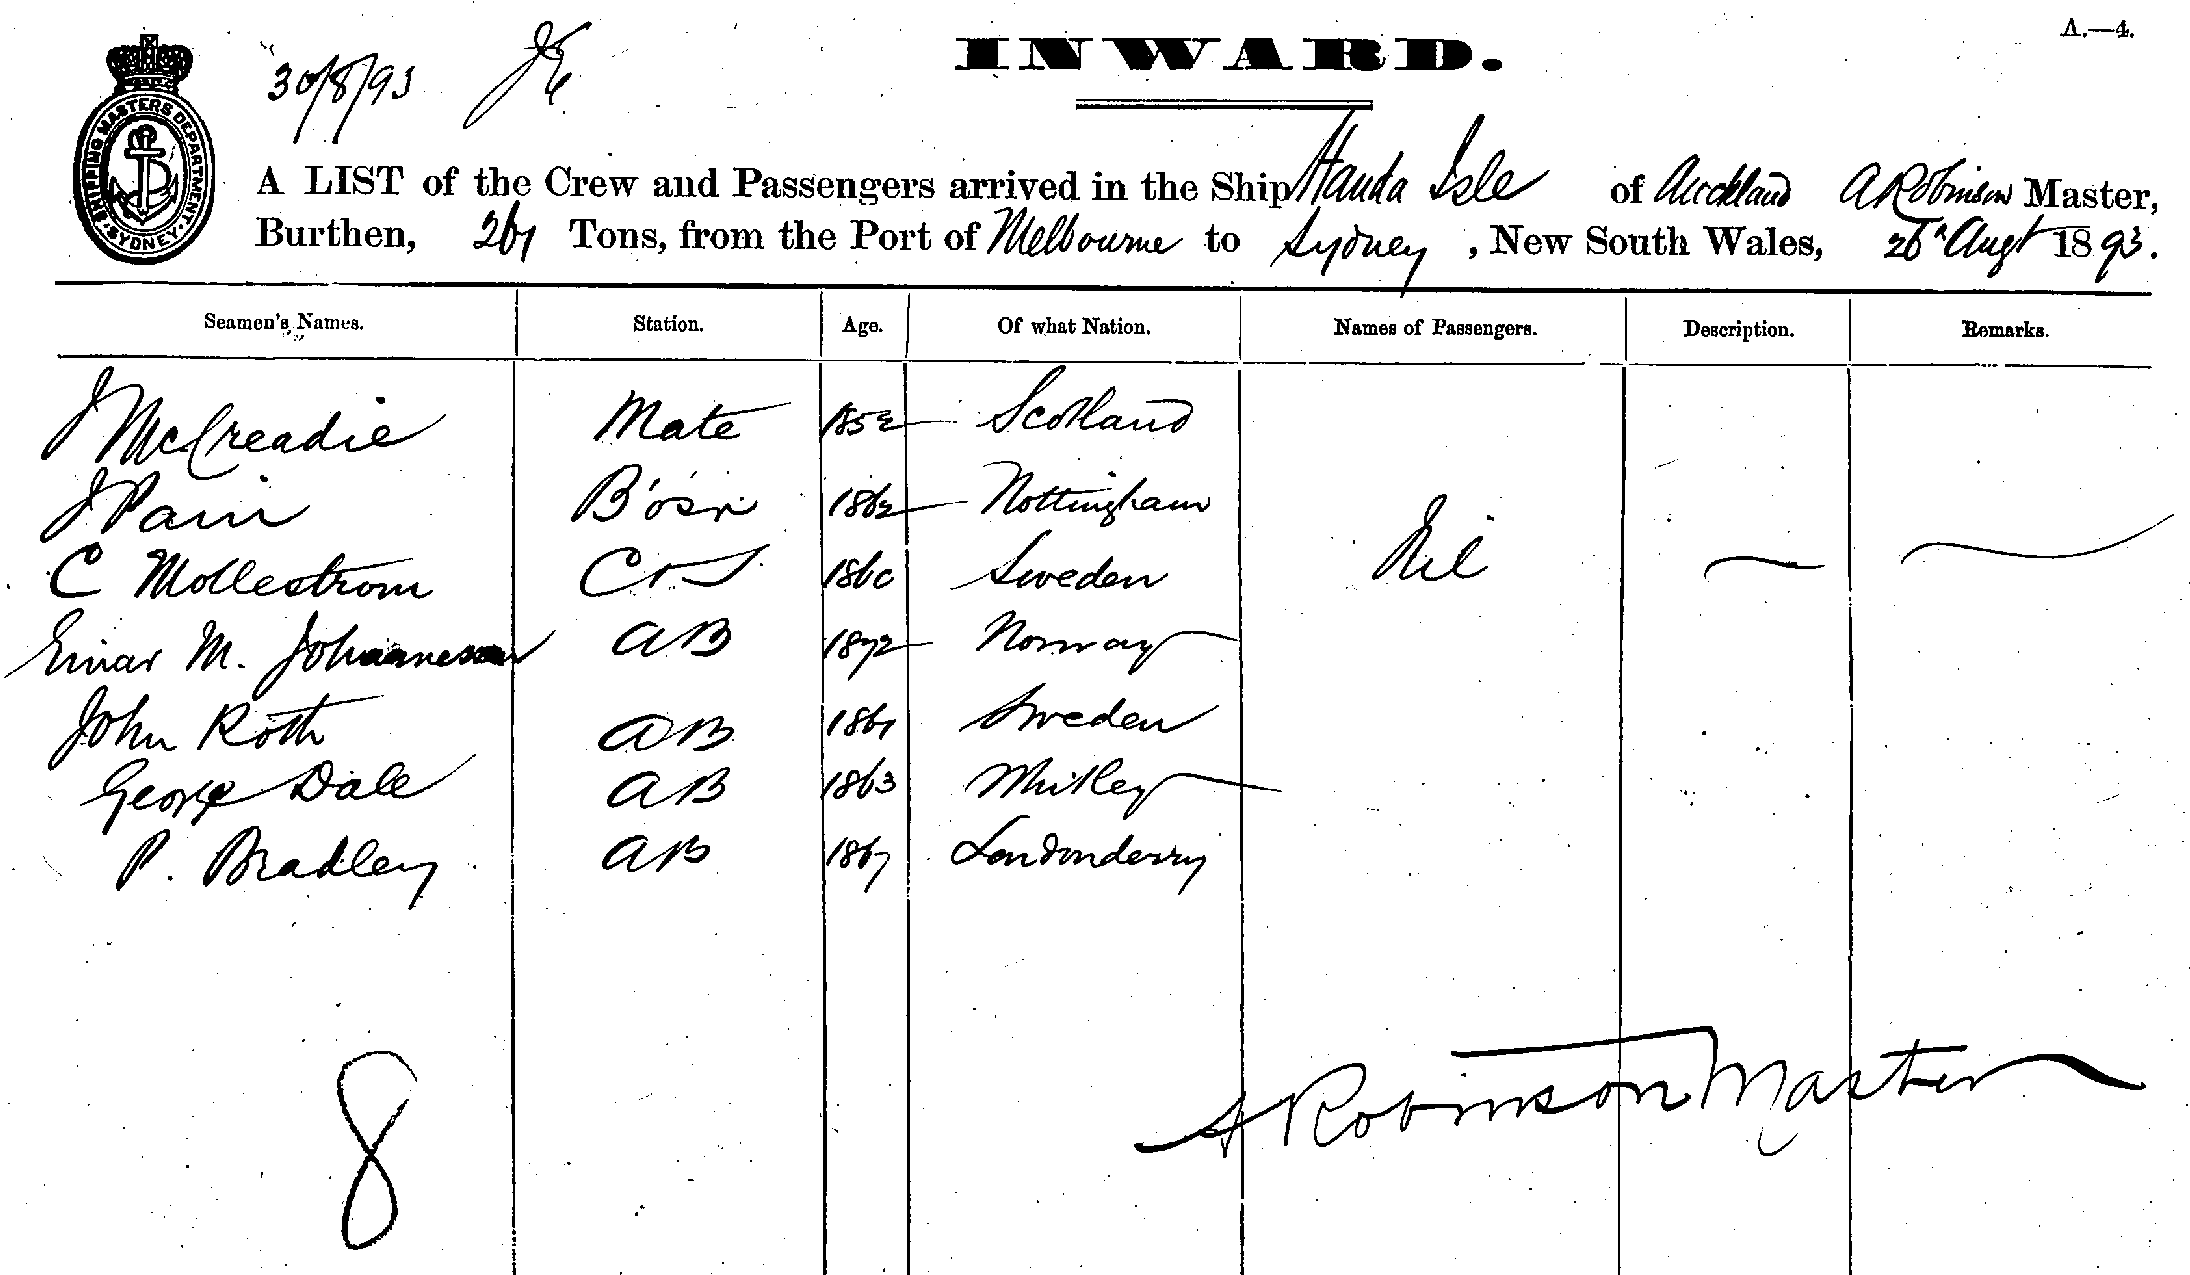 INWARD.
A.—4.
30/8/93 JE
SHIPPING MASTERS DEPARTMENT. SYDNEY.
A LIST of the Crew and Passengers arrived in the Ship Handa Isle of Auckland A Robinson Master,
Burthen, 261 Tons, from the Port of Melbourne to Sydney, New South Wales, 26th Augt 1893.
Seamen's Names. Station. Age. Of what Nation. Names of Passengers. Description. Remarks.
J McCreadie Mate 1852 Scotland
J Pain B'osn 1862 Nottingham
C Mollestrom C & S 1860 Sweden Nil
Einar M. Johannesen AB 1872 Norway
John Roth AB 1861 Sweden
George Dale AB 1863
P. Bradley AB 1867 Londonderry
8
A Robinson Master